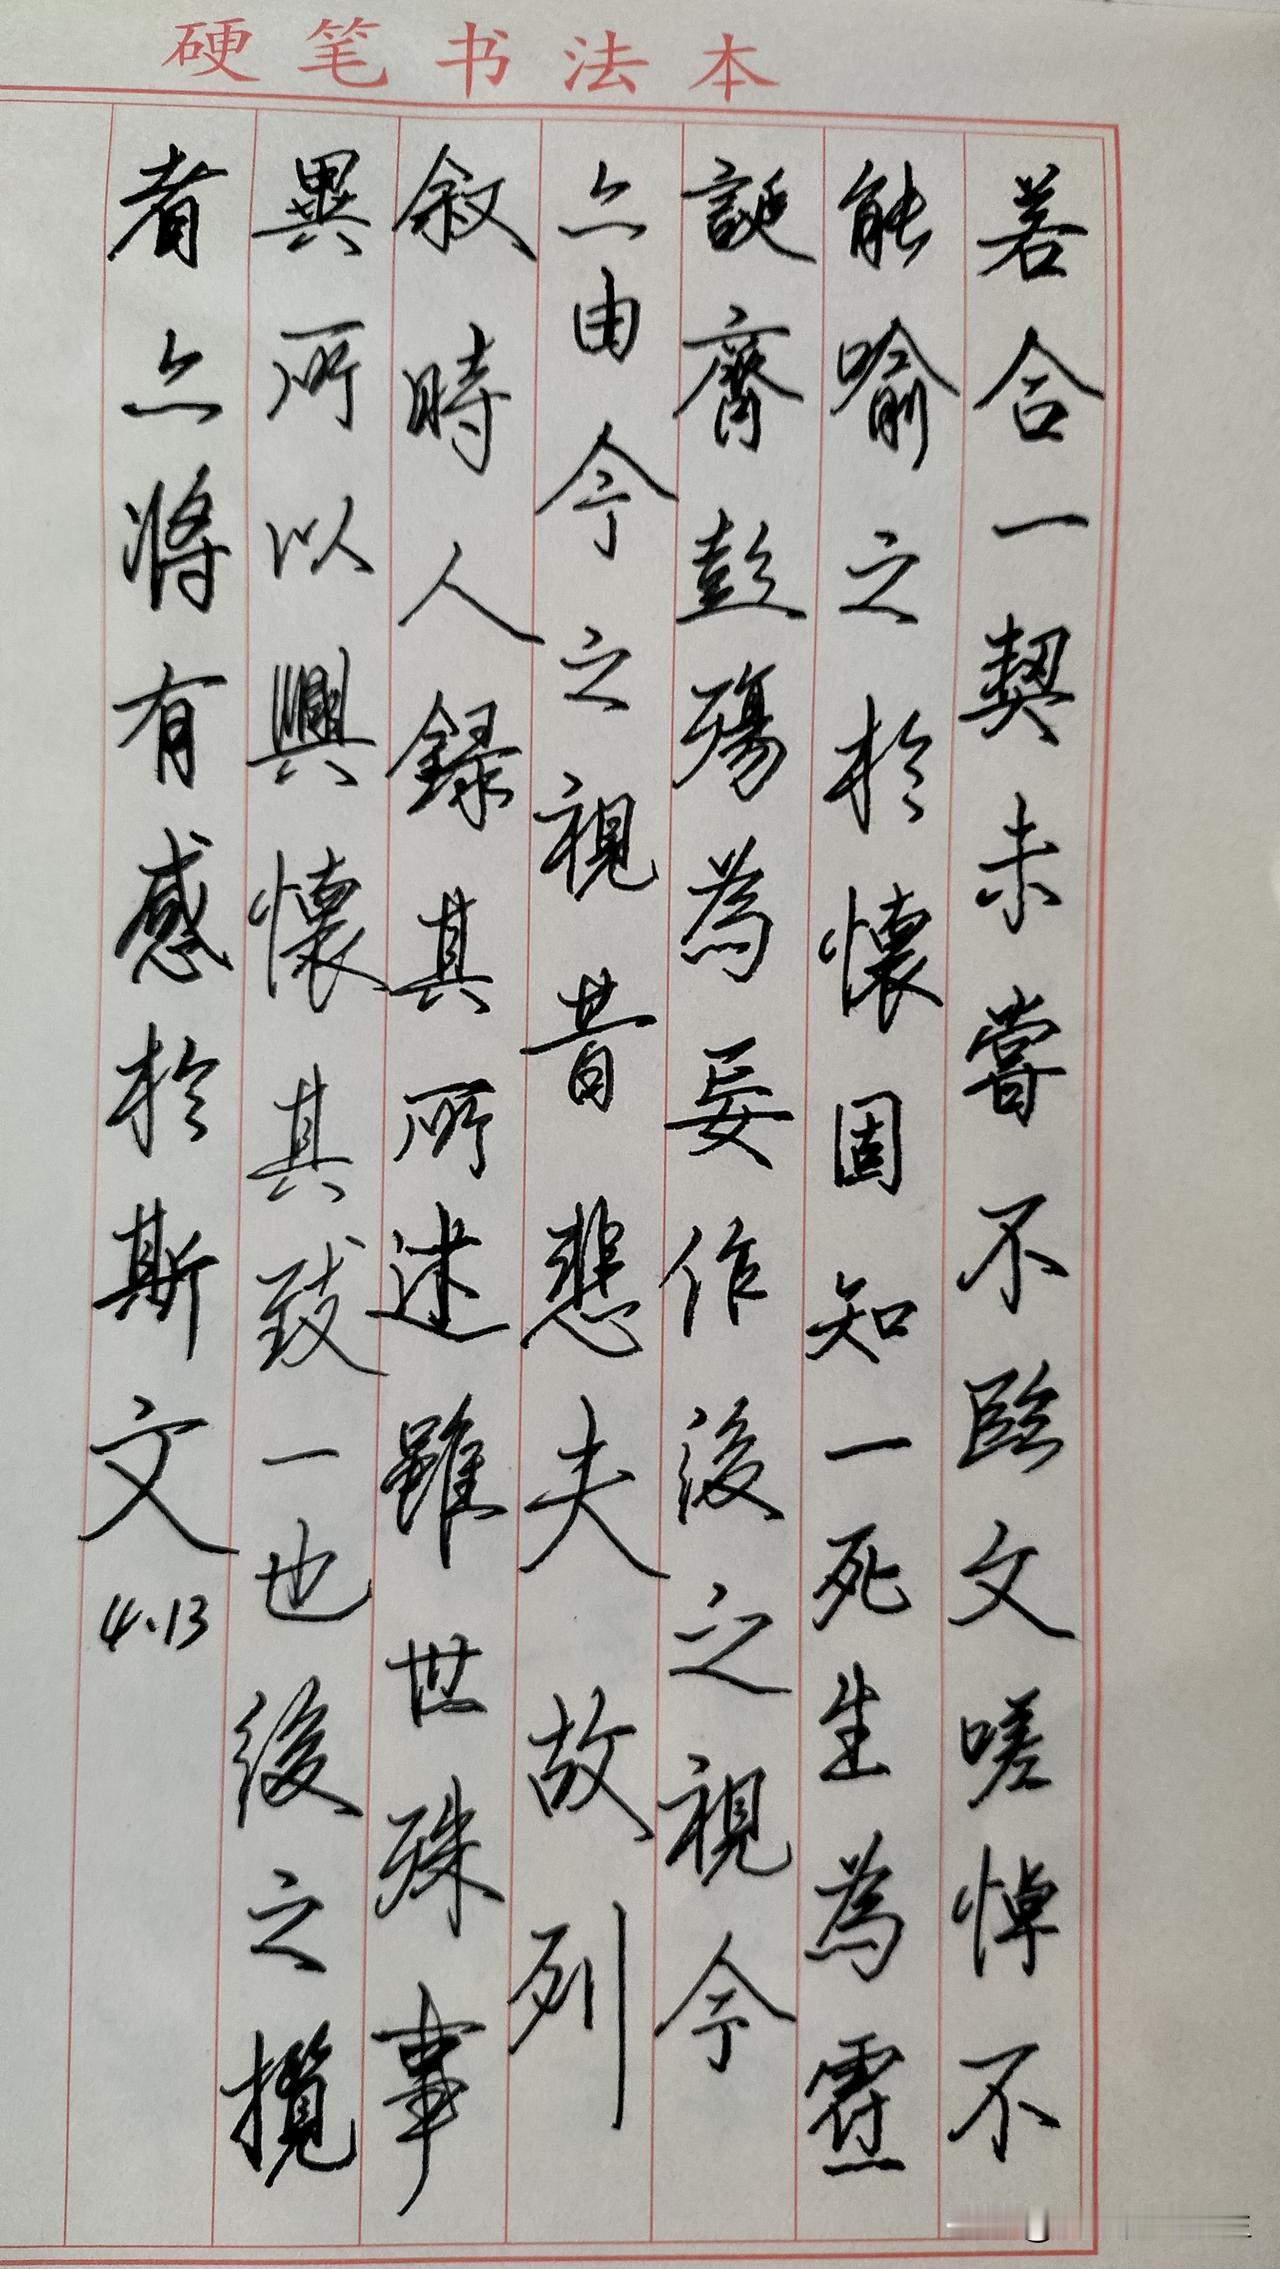 硬笔书法本
若合一契未嘗不臨文嗟悼不
能喻之於懷固知一死生為虛
誕齊彭殤為妄作後之視今
亦由今之視昔悲夫故列
叙時人録其所述雖世殊事
異所以興懷其致一也後之攬
者亦將有感於斯文
4.13